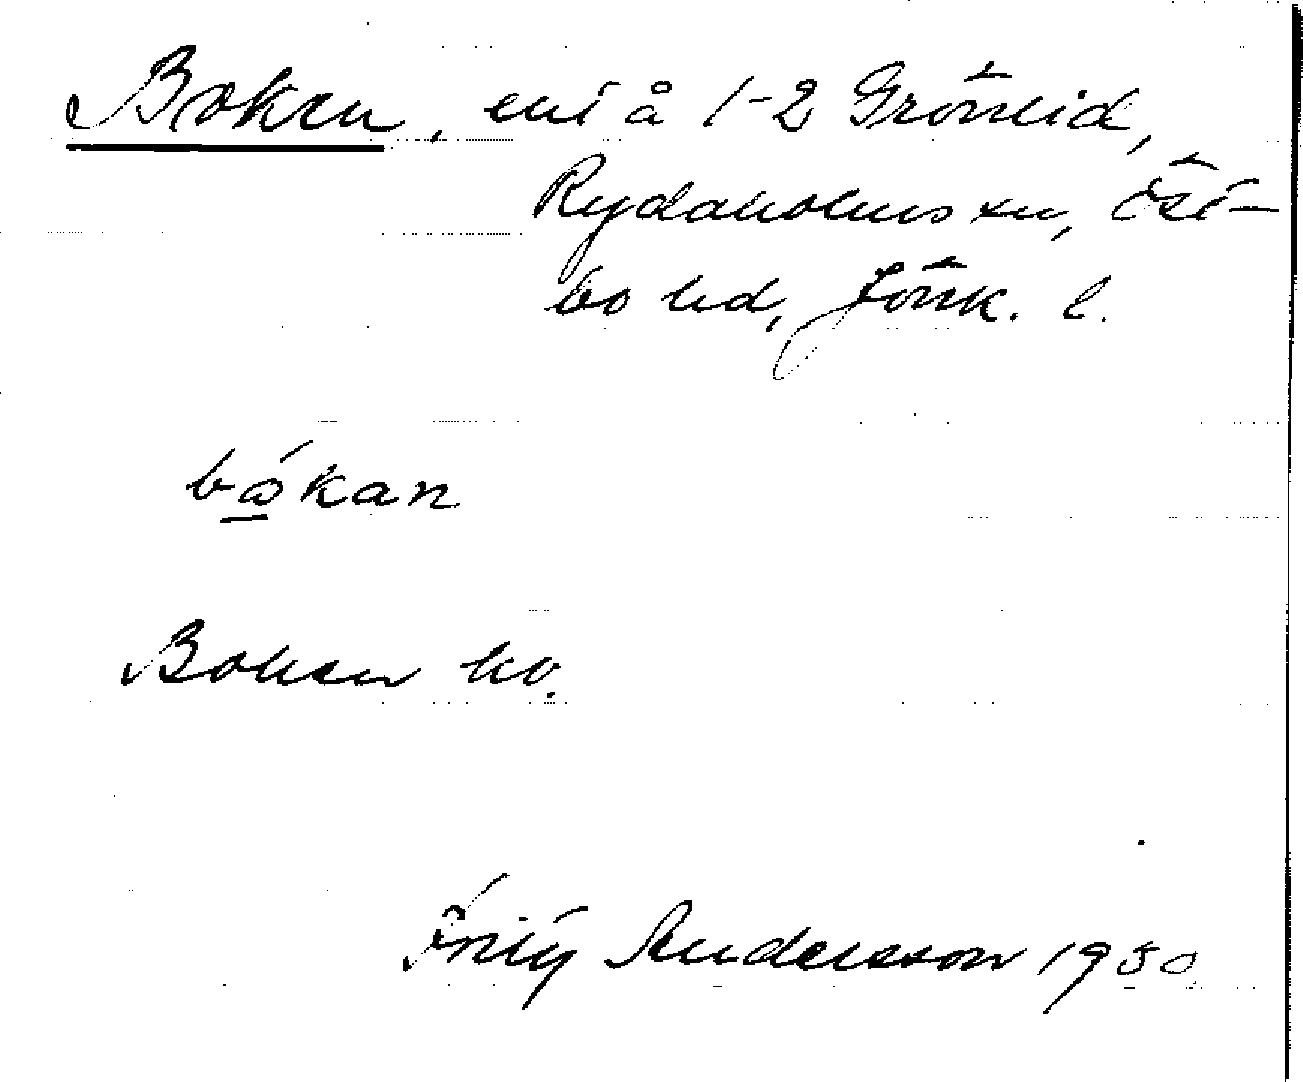 Boken, ent å 1-2 Grönlid,
Rydaholms sn, Öst-
bo hd, Jönk. l.
bókan
Boken ko.
Fritz Andersson 1930